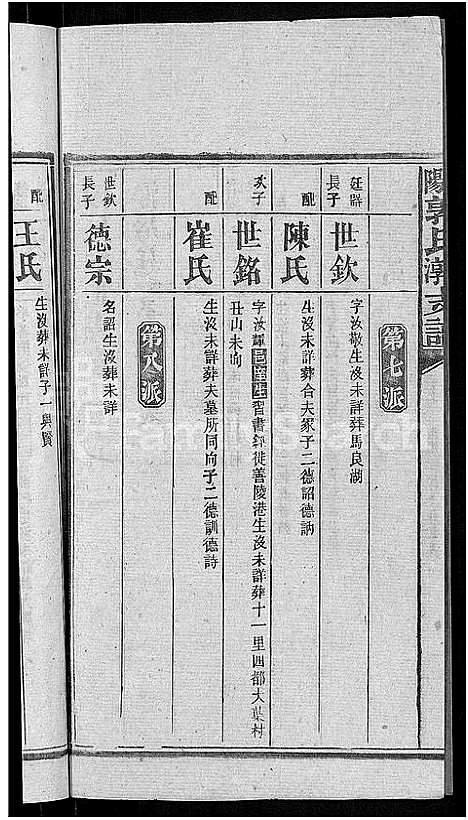 陽郭氏漸支譜
第七派
廷器長子
世欽
字汝敬生沒未詳葬馬良湖
配
陳氏
生沒未詳葬合夫冢子二德詔德訥
次子
世銘
字汝 邑庠生習書經徙善陵港生沒未詳葬十一里四都大葉村
丑山未向
配
崔氏
生沒未詳葬夫墓所同向子二德訓德詩
第八派
世欽長子
德宗
名詔生沒葬未詳
配
王氏
生沒葬未詳子一與賢